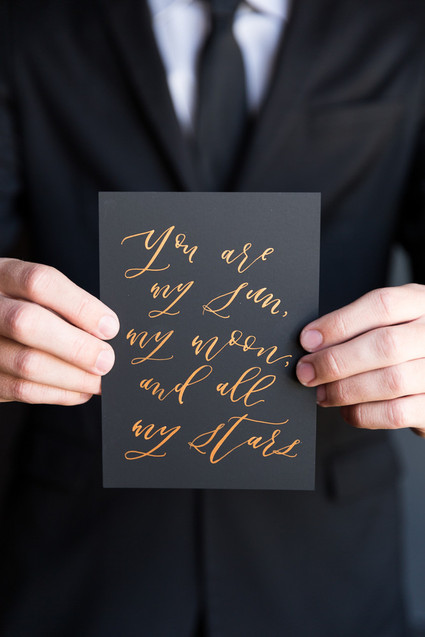 You are
my sun,
my moon,
and all
my stars